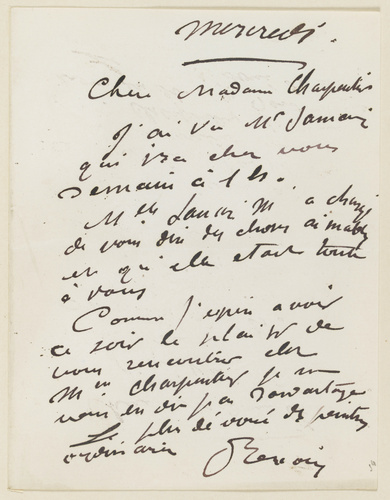 mercredi.
Chère Madame Charpentier
J'ai vu Mr
qui ira chez vous
demain à 1 h.
Mlle m'a chargé
de vous dire des choses aimables
et qu'elle etait toute
à vous
Comme j'espère avoir
ce soir le plaisir de
vous rencontrer chez
Mme Charpentier je ne
vous en dis pas davantage
Le plus dévoué des peintres
ordinaires
Renoir